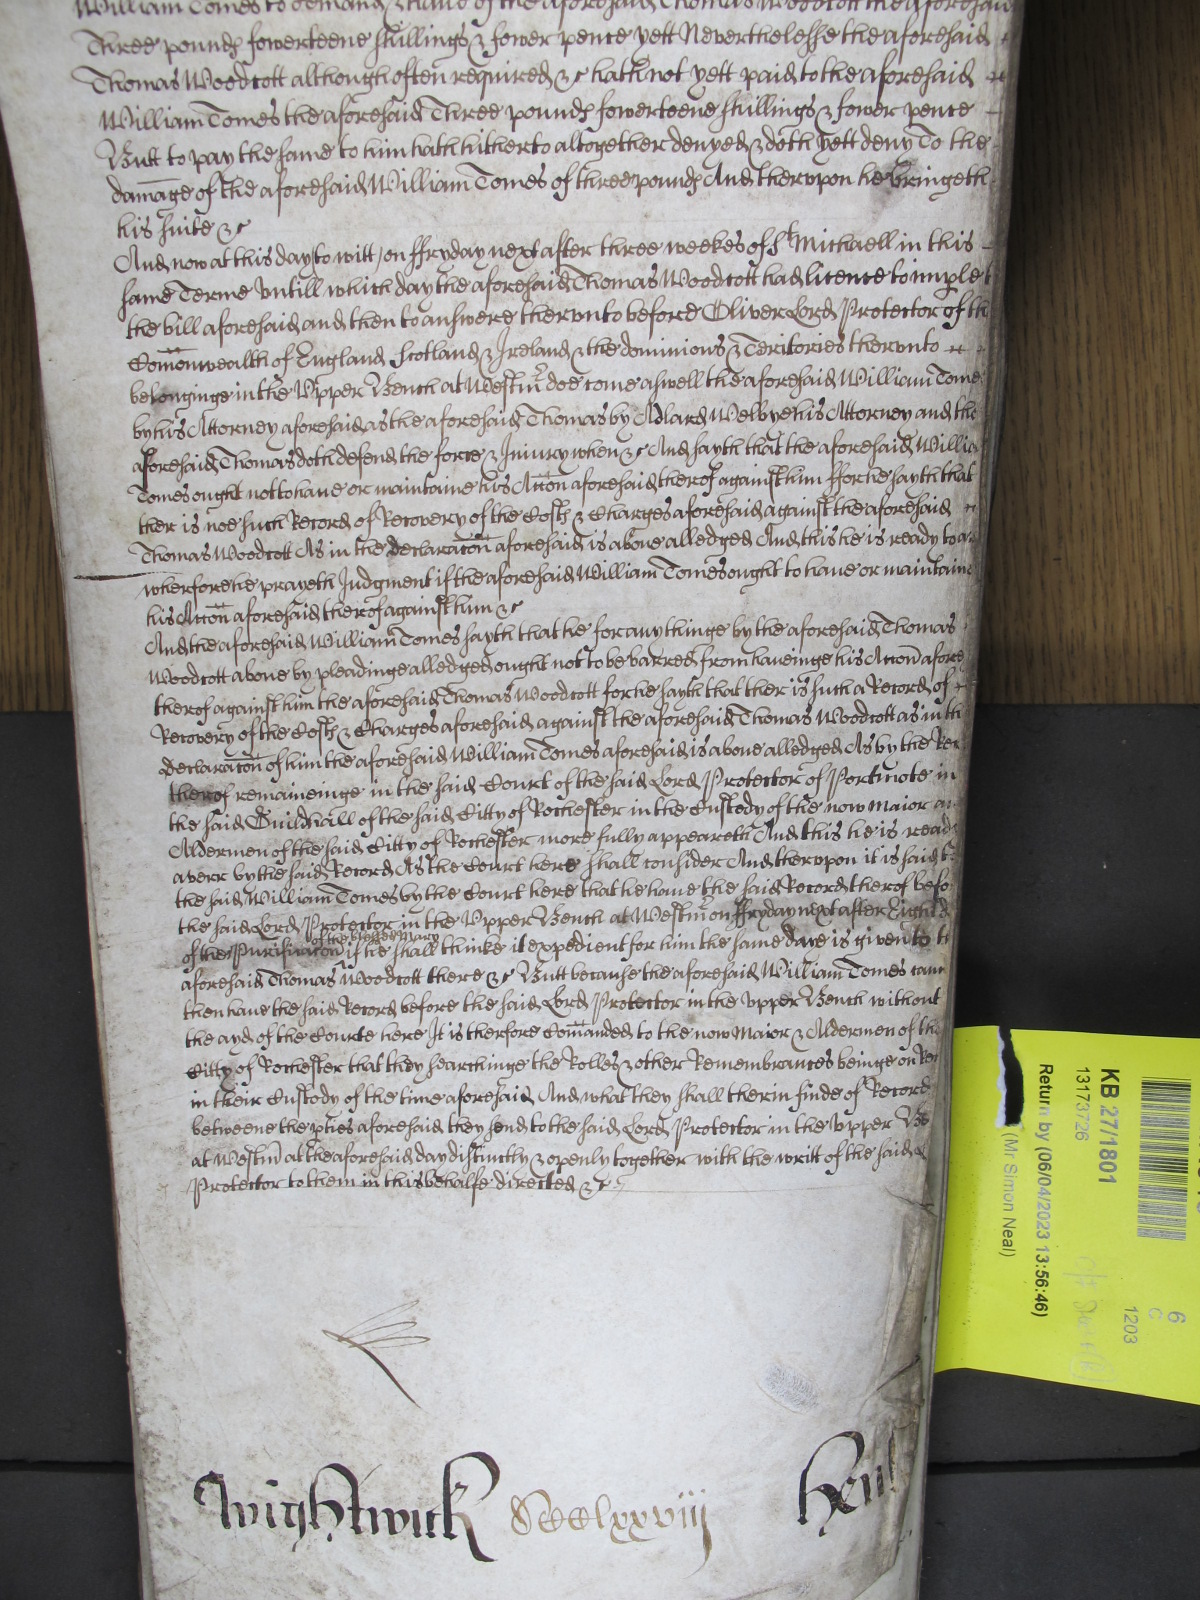 William Tomes to demand & have of the aforesaid Thomas Woodcott the aforesaid
Three pounds fowerteene shillings & fower pence yett Neverthelesse the aforesaid
Thomas Woodcott although often required &c hath not yett paid to the aforesaid
William Tomes the aforesaid Three pounds fowerteene shillings & fower pence
Butt to pay the same to him hath hitherto altogether denyed & doth yett deny To the
damage of the aforesaid William Tomes of three pounds And therupon he bringeth
his suite &c
And now at this day to witt, on ffryday next after three weekes of St Michaell in this
same Terme Untill which day the aforesaid Thomas Woodcott had licence to imple
the bill aforesaid and then to answere therunto before Oliver Lord Protector of th
Comonwealth of England Scotland & Ireland & the dominions & Territories therunto
belonginge in the Upper Bench at Westmr doe come aswell the aforesaid William Tome
by his Attorney aforesaid as the aforesaid Thomas by Adlard Welbye his Attorney and the
aforesaid Thomas doth defend the force & Iniury when &c And sayth that the aforesaid Willia
Tomes ought not to have or maintaine his Accon aforesaid therof against him ffor he sayth that
ther is noe such Record of Recovery of the Costs & Charges aforesaid against the aforesaid
Thomas Woodcott As in the declaracon aforesaid is above alledged And this he is ready to a
wherfore he prayeth Judgment if the aforesaid William Tomes ought to have or maintaine
his Accon aforesaid therof against him &c
And the aforesaid William Tomes sayth that he for any thinge by the aforesaid Thomas
Woodcott above by pleadinge alledged ought not to be barred from haveinge his Accon afore
therof against him the aforesaid Thomas Woodcott for he sayth that ther is such a Record of
Recovery of the Costs & Charges aforesaid against the aforesaid Thomas Woodcott as in th
declaracon of him the aforesaid William Tomes aforesaid is above alledged As by the Rec
therof remaineinge in the said Court of the said Lord Protector of Portmote in
the said Guildhall of the said Citty of Rochester in the Custody of the now Maior an
Aldermen of the said Citty of Rochester more fully appeareth And this he is read
averr by the said Record As the Court here shall consider And therupon it is said t
the said William Tomes by the Court here that he have the said Record therof befo
the said Lord Protector in the Upper Bench at Westmr on ffryday next after Eight d
of the blessed Mary
of the Purificacon if he shall thinke it expedient for him the same daye is given to t
aforesaid Thomas Woodcott there &c Butt because the aforesaid William Tomes cann
then have the said Record before the said Lord Protector in the Upper Bench without
the ayd of the Courte here It is therfore Comanded to the now Maior & Aldermen of the
Citty of Rochester that they searchinge the Rolles & other Remembrances beinge on Rec
in their Custody of the time aforesaid And what they shall therin finde of Record
betweene the pties aforesaid they send to the said Lord Protector in the Upper Be
at Westmr at the aforesaid day distinctly & openly together with the writt of the said L
Protector to them in this behalfe directed &c
Wightwick
DCCClxxviii
Henl
KB 27/1801
13173726
Return by (06/04/2023 13:56:46)
(Mr Simon Neal)
6
C
1203